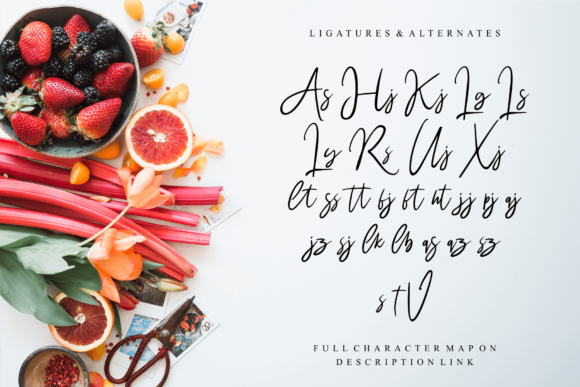 LIGATURES & ALTERNATES
As Hj Kj Lg Ls
Ly Rs Uj Xj
lt ss tt tj ft nt jj pj aj
jz sj lk lb as az sz
s t V
FULL CHARACTER MAP ON
DESCRIPTION LINK